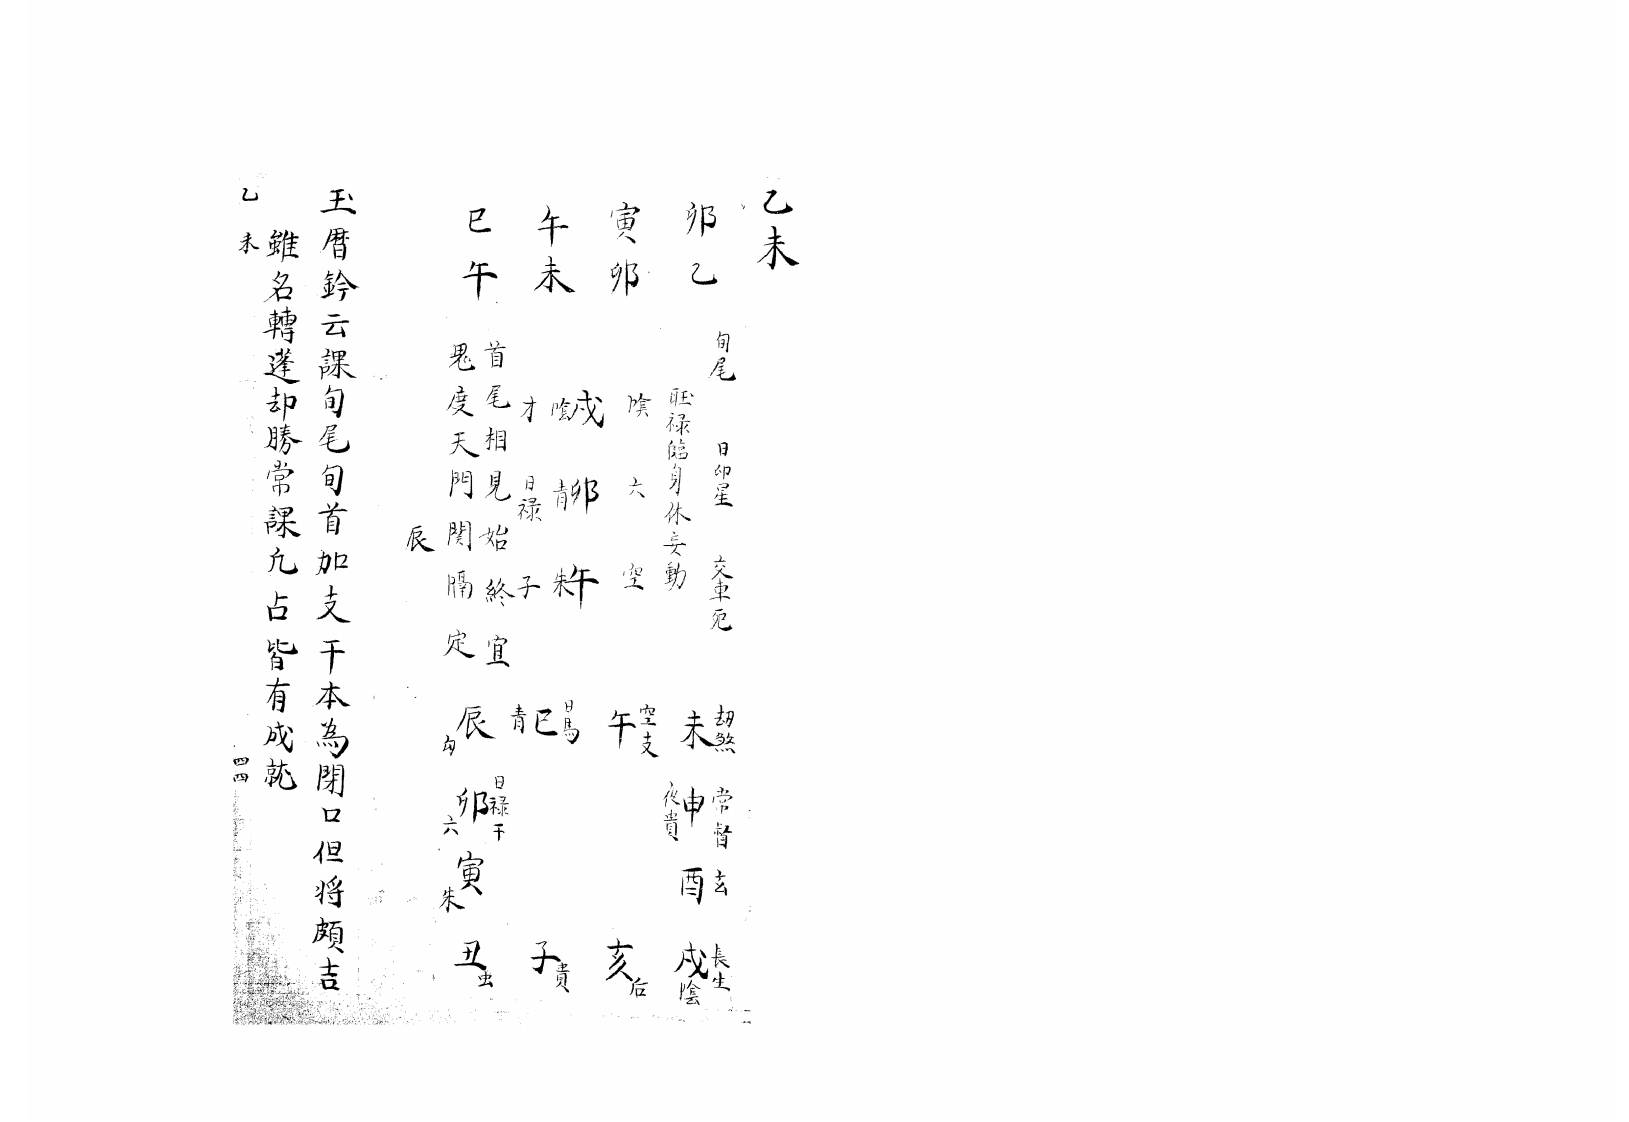 乙未
卯乙 旬尾 日卯星 交車
旺禄臨身休妄動
寅卯 陰 六 空
午未 戌 卯午
陰 青 朱
才 日禄 子
巳午 首尾相見始終宜
鬼度天門関隔定
辰
劫煞 常 玄 長生
未申酉戌
夜貴 陰
空支
午 亥后
日馬
巳 子貴
青
日禄干
辰卯寅丑
六 朱
玉曆鈐云課旬尾旬首加支干本為閉口但將頗吉
雖名轉蓬却勝常課凢占皆有成就
乙未 四四